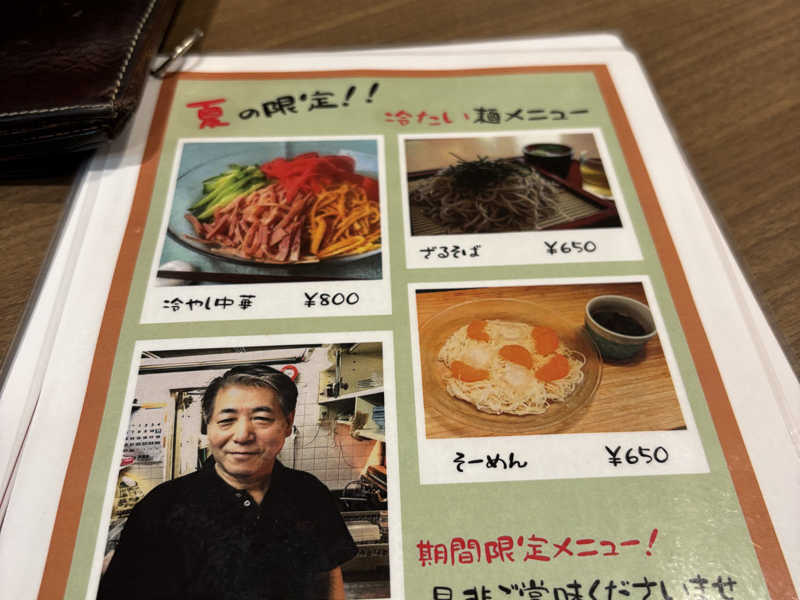 夏の限定!!
冷たい麺メニュー
冷やし中華 ¥800
ざるそば ¥650
そーめん ¥650
期間限定メニュー!
是非ご賞味くださいませ